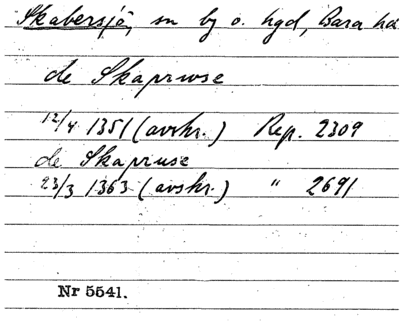 Skabersjö, sn by o. hgd, Bara hd
de Skapriwse
12/4 1351 (avskr.) Rep. 2309
de Skapriuse
23/3 1363 (avskr.) " 2691
Nr 5541.